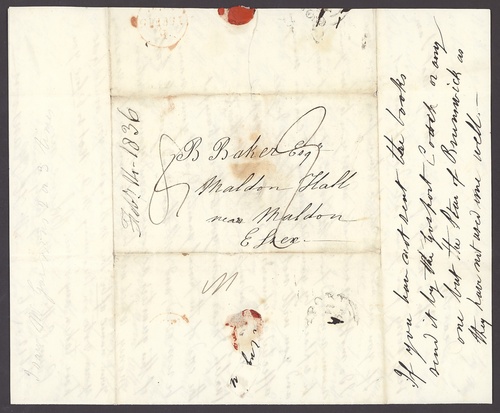 B Baker Esqr
Maldon Hall
near Maldon
Essex.
1836
If you have not sent the books
send it by the Gosport Coach or any
one but the Star of Brunswick as
they have not used me well.